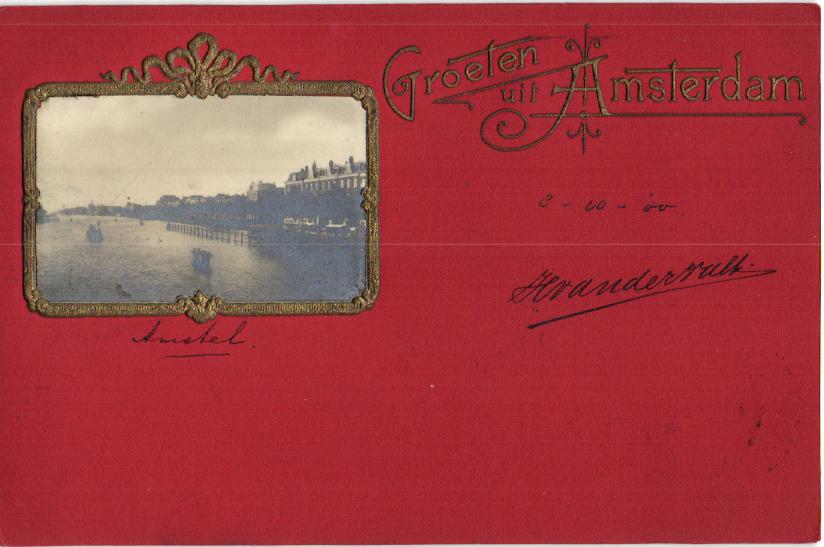 Groeten
uit Amsterdam
8 - 10 - 00.
Hvandervalk.
Amstel.